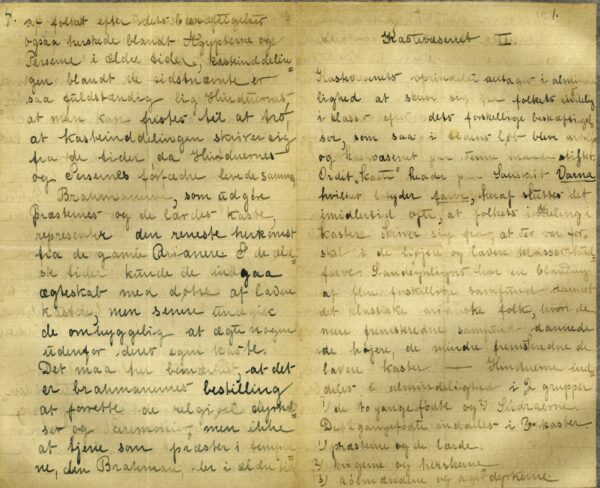 7.
af folket efter dets beskæftigelser
ogsaa herskede blandt Ægypterne og
Perserne i ældre tider, kasteinddelin=
gen blandt de sidstnævnte er
saa fuldstændig lig Hinduernes
at man kan fristes til at tro,
at kasteinddelingen skriver sig
fra de tider, da Hinduernes
og Persernes forfædre levede sammen
Brahmanerne, som udgør
præsternes og de lærdes kaste,
representer den reneste herkomst
fra de gamle Arianere I de æld-
ste tider kunde de indgaa
ægteskab med døtre af lavere
kaster, men senere undgik
de omhyggelig at ægte nogen
udenfor deres egen kaste.
Det maa her bemærkes, at det
er brahmanernes bestilling
at forrette de religiøse
ser og ceremonier, men ikke
at tjene som præster i temple
ne, den Brahman der i
1.
Kastevæsenet II.
Kastevæsenets oprindelse antages i almin
lighed at skrive sig fra folkets inddeling
i klasser efter dets forskellige beskæftigel
ser, som saa i tidens løb blev
og kastevæsenet paa denne maade stiftet
Ordet "kaste" heder paa Sanskrit Varna
hvilket betyder farve, heraf sluttes det
imidlertid ofte, at folkets inddeling i
kaster skriver sig fra, at der var for-
skel i de højere og lavere klassers
farve. Sandsynligvis har en blanding
af flere forskellige samfund
det klassiske arianske folk, hvor de
mere fremskredne samfund dannede
de højere, de mindre fremskredne de
lavere kaster — Hinduerne ind
deles i almindelighed i 2 grupper
1) de to gange fødte og 2) Sudraerne
De to gange fødte inddeles i 3 kaster
1) præsterne og de lærde.
2) krigerne og herskerne
3) købmændene og agerdyrkerne